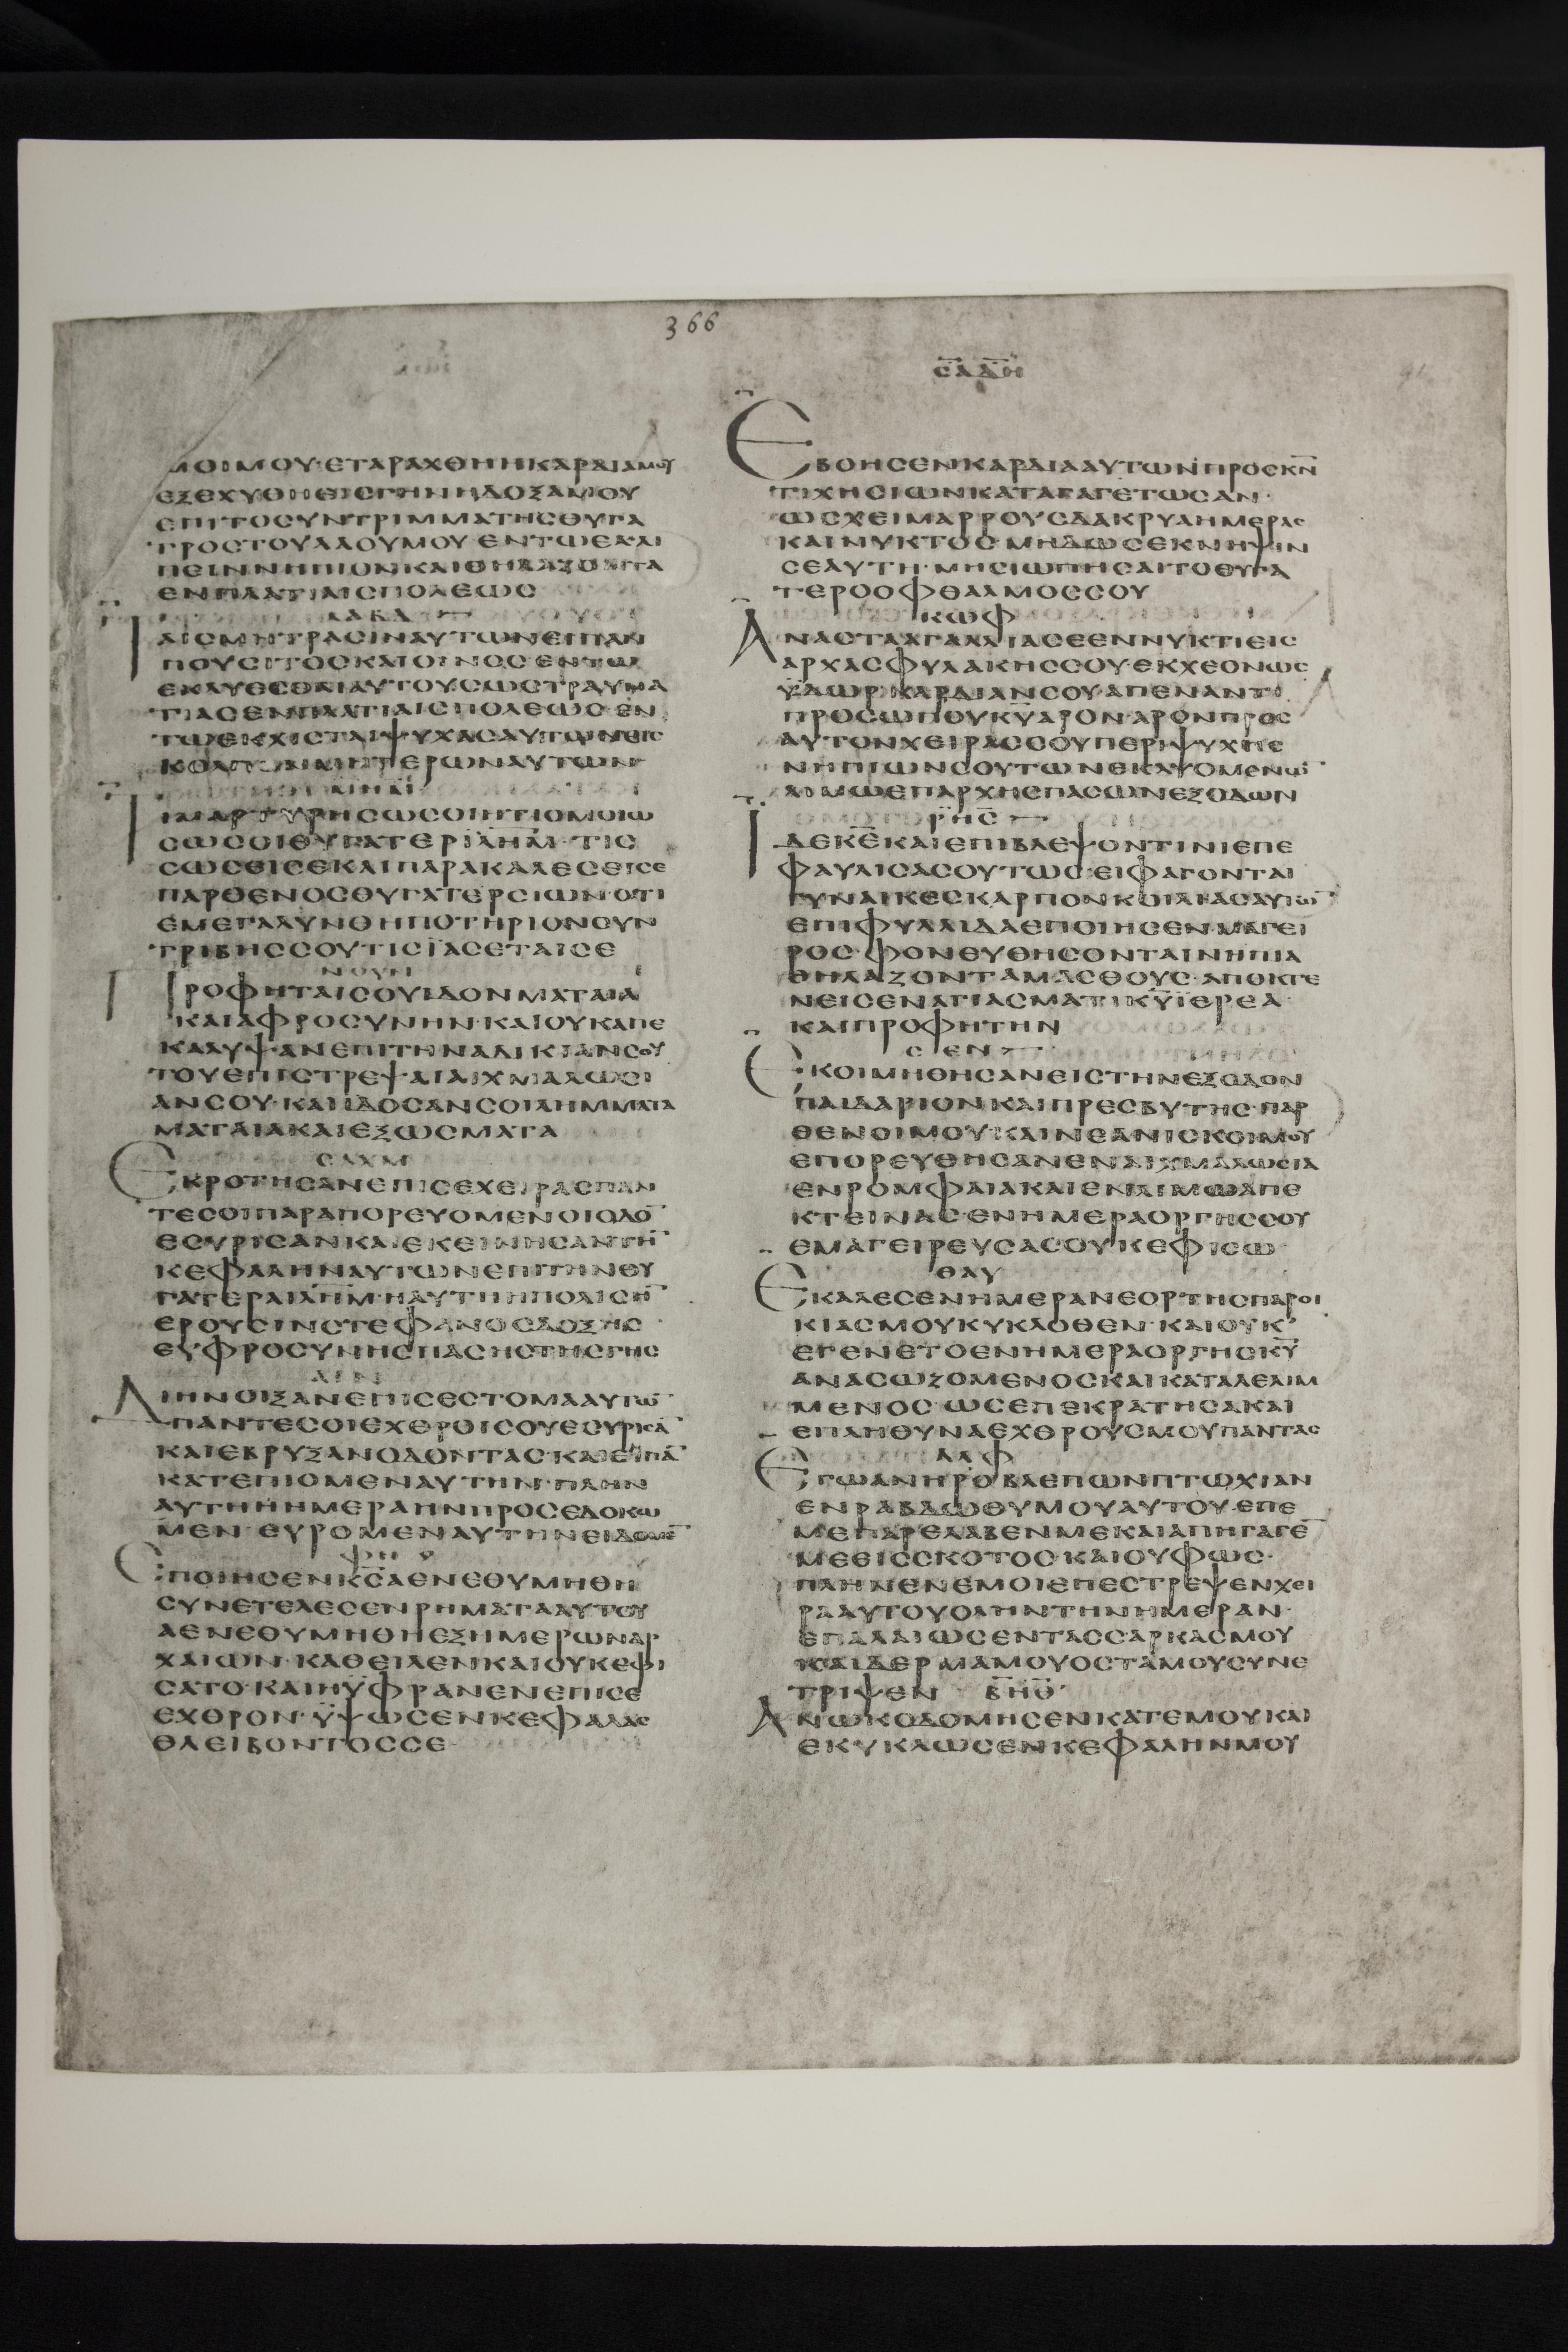 366
ΜΟΙΜΟΥ·ΕΤΑΡΑΧΘΗΗΚΑΡΔΙΑΜΟΥ
ΕΞΕΧΥΘΗΕΙΣΓΗΝΗΔΟΞΑΜΟΥ
ΕΠΙΤΟΣΥΝΤΡΙΜΜΑΤΗΣΘΥΓΑ
ΤΡΟΣΤΟΥΛΑΟΥΜΟΥ·ΕΝΤΩΕΚΛΙ
ΠΕΙΝΝΗΠΙΟΝΚΑΙΘΗΛΑΖΟΝΤΑ
ΕΝΠΛΑΤΙΑΙΣΠΟΛΕΩΣ
ΛΑΒΔ
ΤΑΙΣΜΗΤΡΑΣΙΝΑΥΤΩΝΕΙΠΑΝ
ΠΟΥΣΙΤΟΣΚΑΙΟΙΝΟΣ·ΕΝΤΩ
ΕΚΛΥΕΣΘΑΙΑΥΤΟΥΣΩΣΤΡΑΥΜΑ
ΤΙΑΣΕΝΠΛΑΤΙΑΙΣΠΟΛΕΩΣ·ΕΝ
ΤΩΕΚΧΙΣΤΑΙΨΥΧΑΣΑΥΤΩΝΕΙΣ
ΚΟΛΠΟΝΜΗΤΕΡΩΝΑΥΤΩΝ
ΜΗΜ
ΤΙΜΑΡΤΥΡΗΣΩΣΟΙΗΤΙΟΜΟΙΩ
ΣΩΣΟΙΘΥΓΑΤΕΡΙΛΗΜ·ΤΙΣ
ΣΩΣΕΙΣΕΚΑΙΠΑΡΑΚΑΛΕΣΕΙΣΕ
ΠΑΡΘΕΝΟΣΘΥΓΑΤΕΡΣΙΩΝ·ΟΤΙ
ΕΜΕΓΑΛΥΝΘΗΠΟΤΗΡΙΟΝΣΥΝ
ΤΡΙΒΗΣΣΟΥΤΙΣΪΑΣΕΤΑΙΣΕ
ΝΟΥΝ
ΠΡΟΦΗΤΑΙΣΟΥΙΔΟΝΜΑΤΑΙΑ
ΚΑΙΑΦΡΟΣΥΝΗΝ·ΚΑΙΟΥΚΑΠΕ
ΚΑΛΥΨΑΝΕΠΙΤΗΝΑΔΙΚΙΑΝΣΟΥ
ΤΟΥΕΠΙΣΤΡΕΨΑΙΑΙΧΜΑΛΩΣΙ
ΑΝΣΟΥ·ΚΑΙΙΔΟΣΑΝΣΟΙΛΗΜΜΑΤΑ
ΜΑΤΑΙΑΚΑΙΕΞΩΣΜΑΤΑ
ΣΑΧΜ
ΕΚΡΟΤΗΣΑΝΕΠΙΣΕΧΕΙΡΑΣΠΑΝ
ΤΕΣΟΙΠΑΡΑΠΟΡΕΥΟΜΕΝΟΙΟΔΟ̄
ΕΣΥΡΙΣΑΝΚΑΙΕΚΕΙΝΗΣΑΝΤΗ̄
ΚΕΦΑΛΗΝΑΥΤΩΝΕΠΙΤΗΝΘΥ
ΓΑΤΕΡΑΙΛΗΜ·ΗΑΥΤΗΗΠΟΛΙΣΗ̄
ΕΡΟΥΣΙΝΣΤΕΦΑΝΟΣΔΟΞΗΣ
ΕΥΦΡΟΣΥΝΗΣΠΑΣΗΣΤΗΣΓΗΣ
ΑΙΝ
ΔΙΗΝΟΙΞΑΝΕΠΙΣΕΣΤΟΜΑΑΥΤΩ̄
ΠΑΝΤΕΣΟΙΕΧΘΡΟΙΣΟΥΕΣΥΡΙΣᾹ
ΚΑΙΕΒΡΥΞΑΝΟΔΟΝΤΑΣ·ΚΑΙΕΙΠᾹ
ΚΑΤΕΠΙΟΜΕΝΑΥΤΗΝ·ΠΛΗΝ
ΑΥΤΗΗΗΜΕΡΑΗΝΠΡΟΣΕΔΟΚΩ
ΜΕΝ·ΕΥΡΟΜΕΝΑΥΤΗΝΕΙΔΟΜΕ̄
ΦΗ
ΕΠΟΙΗΣΕΝΚΣΑΕΝΕΘΥΜΗΘΗ
ΣΥΝΕΤΕΛΕΣΕΝΡΗΜΑΤΑΑΥΤΟΥ
ΑΕΝΕΘΥΜΗΘΗΕΞΗΜΕΡΩΝΑΡ
ΧΑΙΩΝ·ΚΑΘΕΙΛΕΝΚΑΙΟΥΚΕΦΙ
ΣΑΤΟ·ΚΑΙΗΫΦΡΑΝΕΝΕΠΙΣΕ
ΕΧΘΡΟΝ·ΫΨΩΣΕΝΚΕΦΑΛΑΣ
ΘΛΕΙΒΟΝΤΟΣΣΕ
ΣΑΔΗ
ΕΒΟΗΣΕΝΚΑΡΔΙΑΑΥΤΩΝΠΡΟΣΚΝ̄
ΤΙΧΗΣΙΩΝΚΑΤΑΓΑΓΕΤΩΣΑΝ·
ΩΣΧΕΙΜΑΡΡΟΥΣΔΑΚΡΥΑΗΜΕΡΑΣ
ΚΑΙΝΥΚΤΟΣ·ΜΗΔΩΣΕΚΝΗΨΙΝ
ΣΕΑΥΤΗ·ΜΗΣΙΩΠΗΣΑΙΤΟΘΥΓΑ
ΤΕΡΟΟΦΘΑΛΜΟΣΣΟΥ
ΚΩΦ
ΑΝΑΣΤΑΑΓΑΛΛΙΑΣΕΕΝΝΥΚΤΙΕΙΣ
ΑΡΧΑΣΦΥΛΑΚΗΣΣΟΥ·ΕΚΧΕΟΝΩΣ
ΫΔΩΡΚΑΡΔΙΑΝΣΟΥΑΠΕΝΑΝΤΙ
ΠΡΟΣΩΠΟΥΚῩΑΡΟΝ·ΑΡΟΝΠΡΟΣ
ΑΥΤΟΝΧΕΙΡΑΣΣΟΥΠΕΡΙΨΥΧΗΣ
ΝΗΠΙΩΝΣΟΥΤΩΝΕΚΛΥΟΜΕΝΩ̄
ΛΙΜΩΕΠΑΡΧΗΣΠΑΣΩΝΕΞΟΔΩΝ
ΡΗΣ
ΙΔΕΚΕ̄ΚΑΙΕΠΙΒΛΕΨΟΝΤΙΝΙΕΠΕ
ΦΑΥΛΙΣΑΣΟΥΤΩΣ·ΕΙΦΑΓΟΝΤΑΙ
ΓΥΝΑΙΚΕΣΚΑΡΠΟΝΚΟΙΛΙΑΣΑΥΤΩ̄
ΕΠΙΦΥΛΛΙΔΑΕΠΟΙΗΣΕΝΜΑΓΕΙ
ΡΟΣ·ΦΟΝΕΥΘΗΣΟΝΤΑΙΝΗΠΙΑ
ΘΗΛΑΖΟΝΤΑΜΑΣΘΟΥΣ·ΑΠΟΚΤΕ
ΝΕΙΣΕΝΑΓΙΑΣΜΑΤΙΚῩΪΕΡΕΑ
ΚΑΙΠΡΟΦΗΤΗΝ
ΣΕΝ
ΕΚΟΙΜΗΘΗΣΑΝΕΙΣΤΗΝΕΞΟΔΟΝ
ΠΑΙΔΑΡΙΟΝΚΑΙΠΡΕΣΒΥΤΗΣ·ΠΑΡ
ΘΕΝΟΙΜΟΥΚΑΙΝΕΑΝΙΣΚΟΙΜΟΥ
ΕΠΟΡΕΥΘΗΣΑΝΕΝΑΙΧΜΑΛΩΣΙΑ
ΕΝΡΟΜΦΑΙΑΚΑΙΕΝΛΙΜΩΑΠΕ
ΚΤΕΙΝΑΣ·ΕΝΗΜΕΡΑΟΡΓΗΣΣΟΥ
ΕΜΑΓΕΙΡΕΥΣΑΣΟΥΚΕΦΙΣΩ
ΘΑΥ
ΕΚΑΛΕΣΕΝΗΜΕΡΑΝΕΟΡΤΗΣΠΑΡΟΙ
ΚΙΑΣΜΟΥΚΥΚΛΟΘΕΝ·ΚΑΙΟΥΚ
ΕΓΕΝΕΤΟΕΝΗΜΕΡΑΟΡΓΗΣΚῩ
ΑΝΑΣΩΖΟΜΕΝΟΣΚΑΙΚΑΤΑΛΕΛΙΜ
ΜΕΝΟΣ ΩΣΕΠΕΚΡΑΤΗΣΑΚΑΙ
ΕΠΛΗΘΥΝΑΕΧΘΡΟΥΣΜΟΥΠΑΝΤΑΣ
ΑΛΦ
ΕΓΩΑΝΗΡΟΒΛΕΠΩΝΠΤΩΧΙΑΝ
ΕΝΡΑΒΔΩΘΥΜΟΥΑΥΤΟΥ·ΕΠΕ
ΜΕΠΑΡΕΛΑΒΕΝΜΕΚΑΙΑΠΗΓΑΓΕ̄
ΜΕΕΙΣΣΚΟΤΟΣ·ΚΑΙΟΥΦΩΣ·
ΠΛΗΝΕΝΕΜΟΙΕΠΕΣΤΡΕΨΕΝΧΕΙ
ΡΑΑΥΤΟΥΟΛΗΝΤΗΝΗΜΕΡΑΝ·
ΕΠΑΛΑΙΩΣΕΝΤΑΣΣΑΡΚΑΣΜΟΥ
ΚΑΙΔΕΡΜΑΜΟΥΟΣΤΑΜΟΥΣΥΝΕ
ΤΡΙΨΕΝ ΒΗΘ
ΑΝΩΚΟΔΟΜΗΣΕΝΚΑΤΕΜΟΥΚΑΙ
ΕΚΥΚΛΩΣΕΝΚΕΦΑΛΗΝΜΟΥ